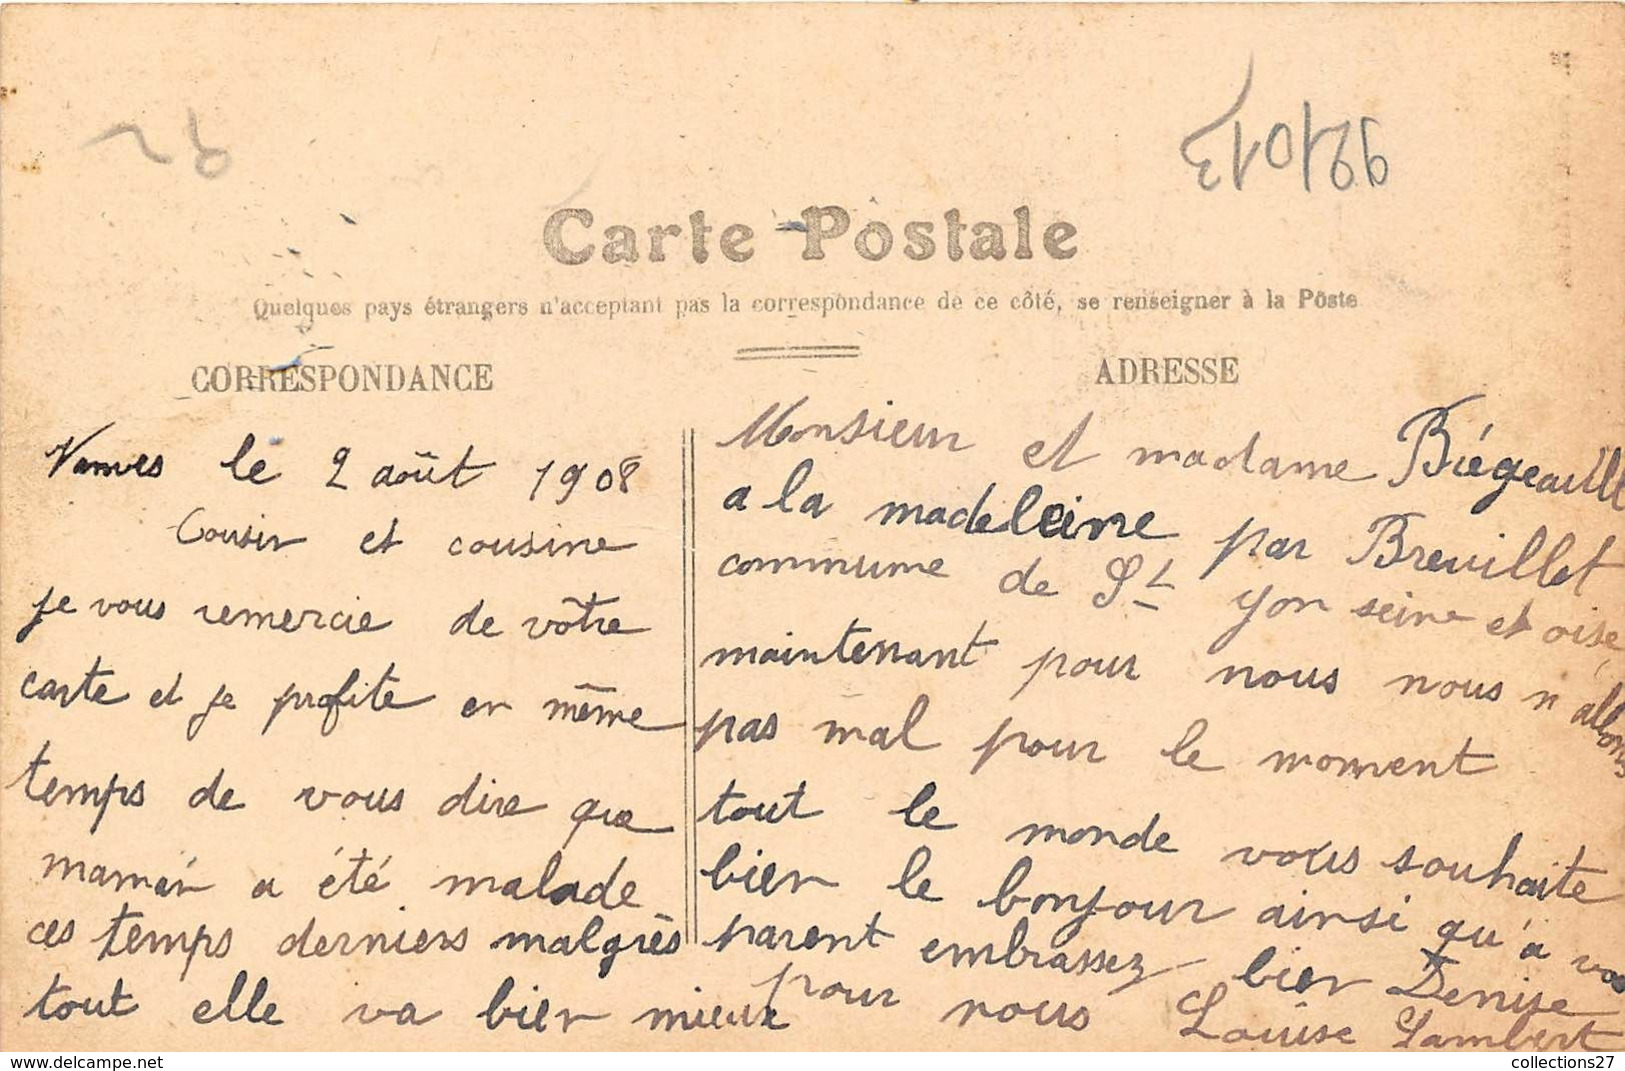 Carte Postale
Quelques pays étrangers n'acceptant pas la correspondance de ce côté, se renseigner à la Poste
CORRESPONDANCE
Vanves le 2 août 1908
Cousin et cousine
je vous remercie de votre
carte et je profite en même
temps de vous dire que
maman a été malade
ces temps derniers malgrès
tout elle va bien mieux
ADRESSE
Monsieur et madame Biégeault
a la madeleine par Breuillet
commune de St yon seine et oise
maintenant pour nous nous n'allons
pas mal pour le moment
tout le monde vous souhaite
bien le bonjour ainsi qu'a vos
parent embrassez bien Denise
pour nous Louise Lambert
collections27
www.delcampe.net